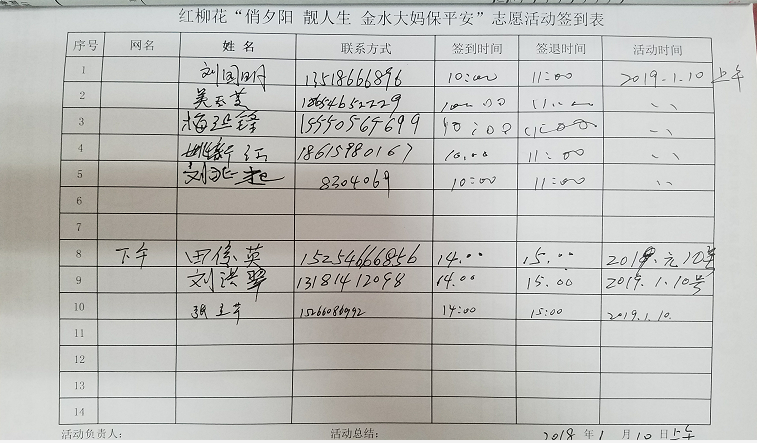 红柳花“俏夕阳 靓人生 金水大妈保平安”志愿活动签到表
序号 网名 姓名 联系方式 签到时间 签退时间 活动时间
1 刘国明 13518666896 10:00 11:00 2019.1.10 上午
2 18654652229 10:00 11:00 、、
3 15550569699 10:00 11:00 、、
4 红 18615980167 10:00 11:00 、、
5 刘 8304069 10:00 11:00 、、
6
7
8 下午 田俊英 15254666856 14.00 15.00 2019.元10号
9 刘洪翠 13181412098 14.00 15.00 2019.1.10号
10 张玉芹 15266086992 14:00 15:00 2019.1.10.
11
12
13
14
活动负责人: 活动总结: 2018 年 1 月 10 日